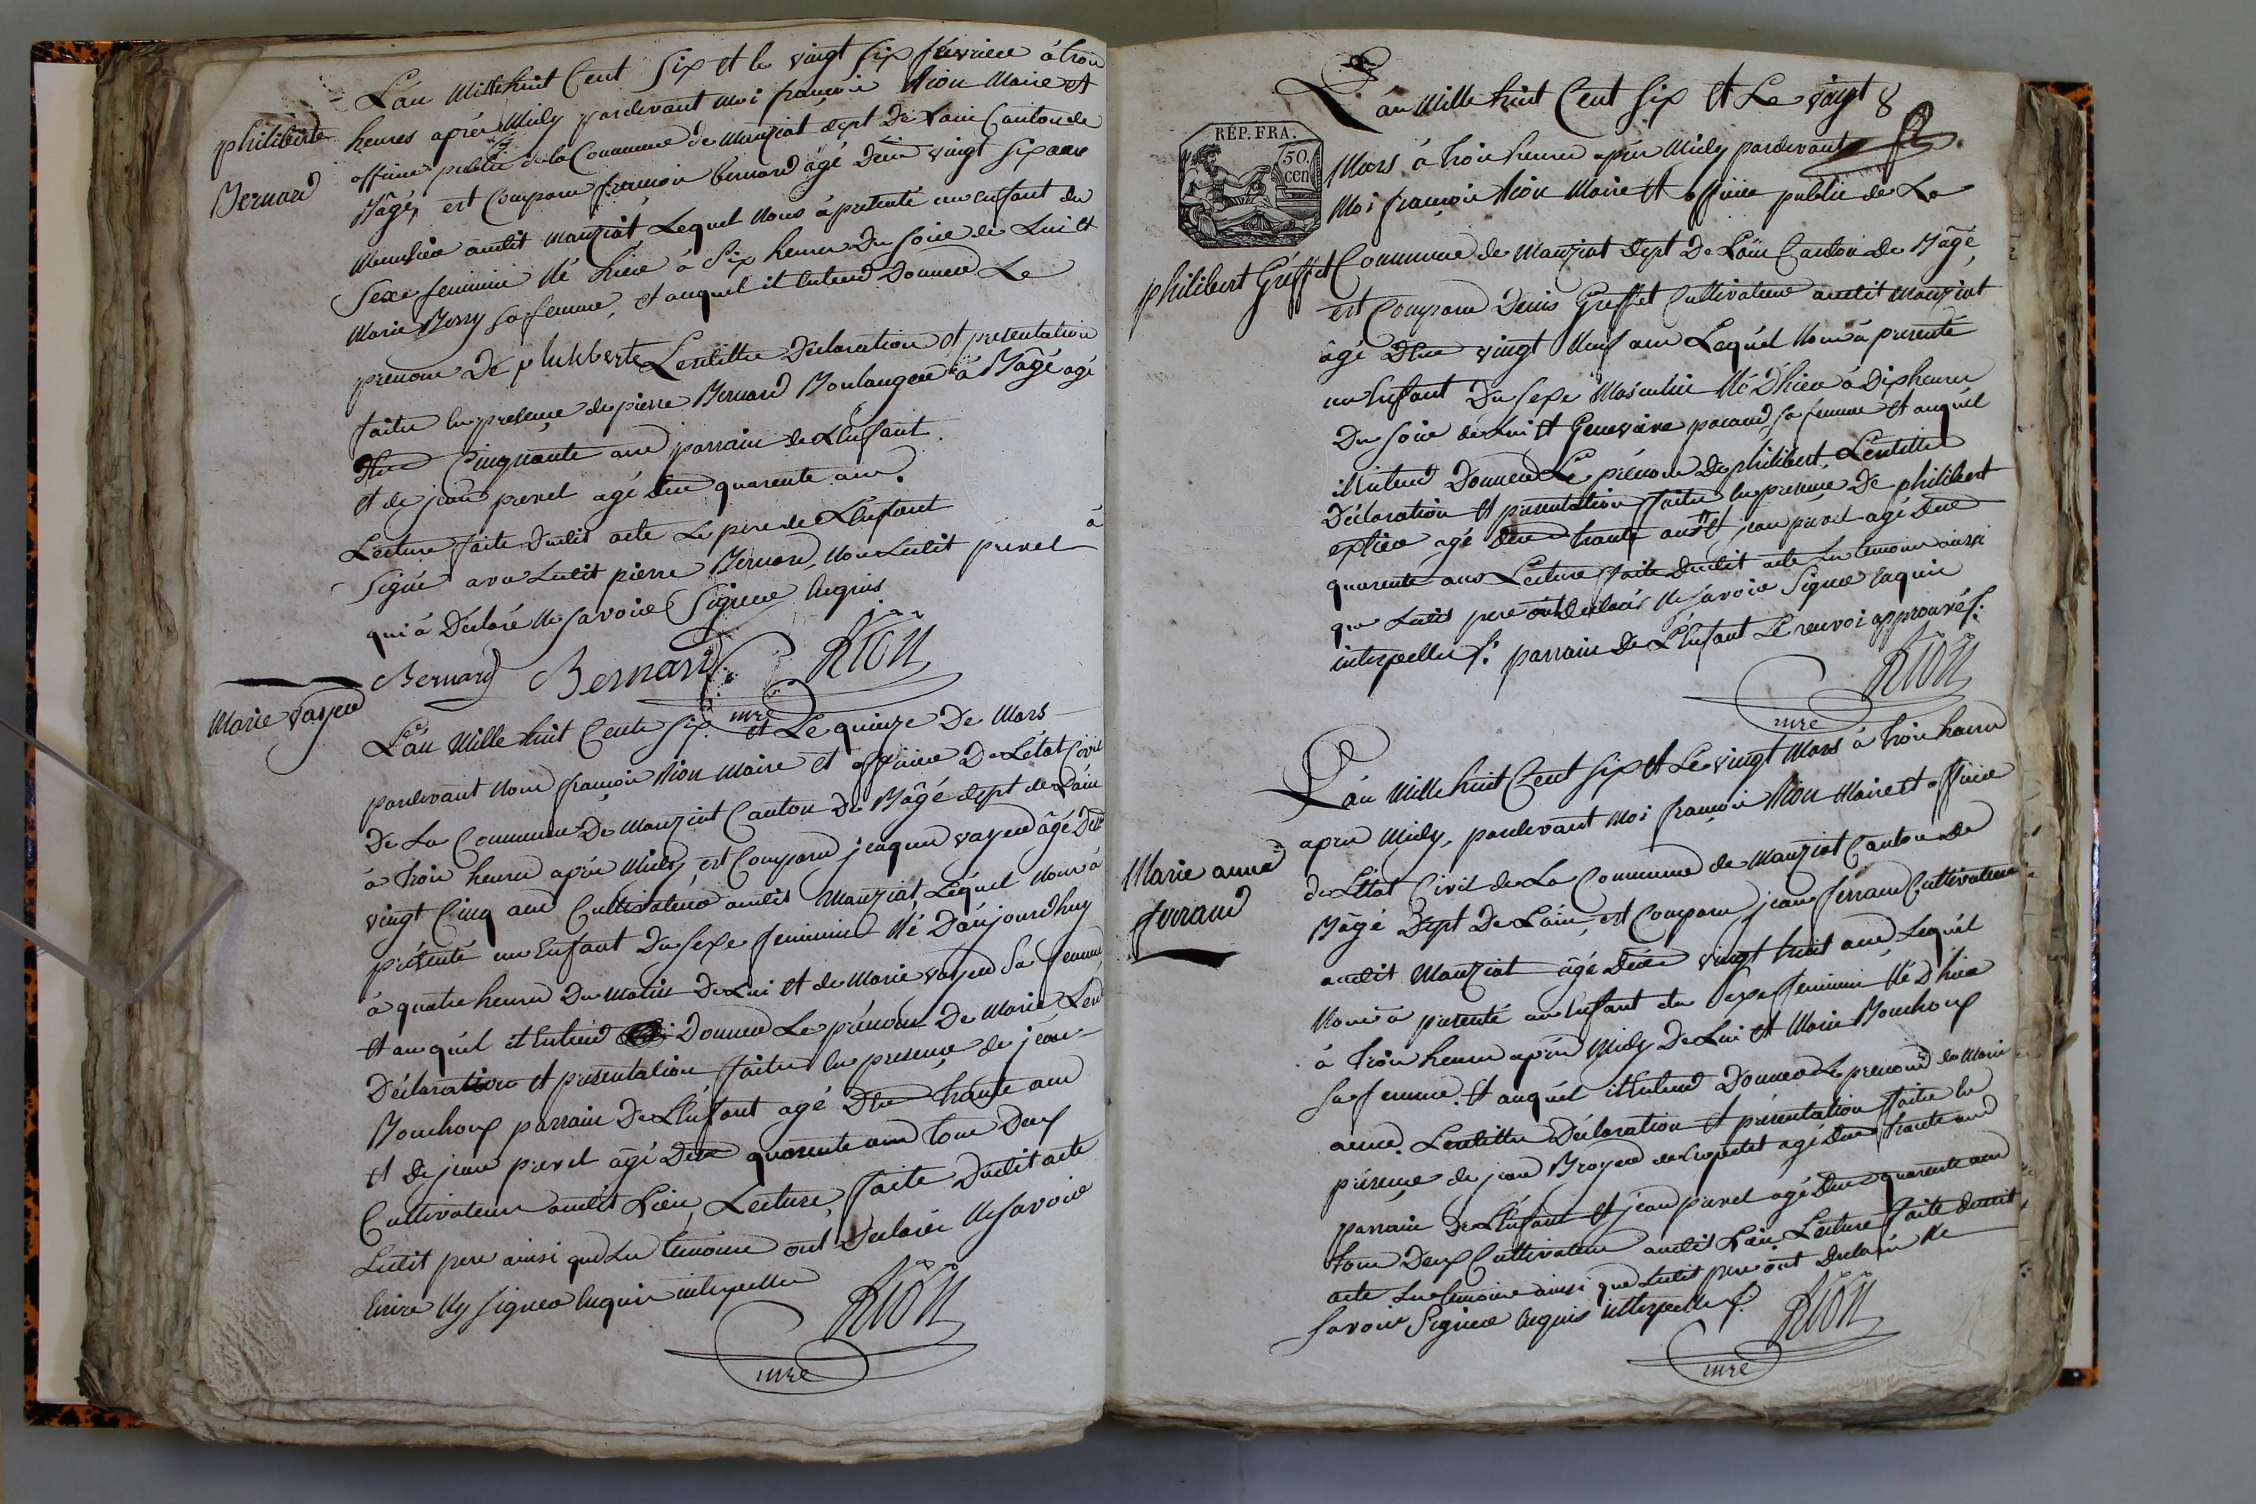 L'an Mille huit Cent Six et le vingt six fevrier à trois
philiberte
Bernard
heures après Midy pardevant Moi françois Rion Maire et
officier public de la Commune de Manziat dept De L'ain Canton de
Bâgé, est Comparu françois bernard âgé De vingt six ans
Meunier audit Manziat Lequel Nous à presenté un enfant du
Sexe feminin Né hier à Six heures Du Soir de Lui et
Marie Berry sa femme, et auquel il entend Donner Le
prenom De philiberte Lesdittes Déclaration et presentation
faites en presence de pierre Bernard Boulanger à Bâgé agé
D'en Cinquante ans parrain de L'Enfant
et de jean pavet agé d'en quarente ans.
Lecture faite dudit acte Le pere de L'Enfant à
Signé avec Ledit pierre Bernard, non Ledit pavet
qui à Déclaré Ne Savoir Signer Enquis
Bernard Bernard Rion
mre
Marie vayer
L'an Mille huit Cents six et Le quinze De Mars
pardevant Nous françois Rion Maire et officier De L'état Civil
De La Commune De Manziat Canton De Bâgé dept de L'ain
à trois heures après Midy, est Comparu jacques vayer âgé D'en
vingt Cinq ans Cultivateur audit Manziat, Lequel Nous à
présenté un Enfant Du Sexe feminin Né D'aujourdhuy
à quatre heures Du Matin De Lui et de Marie vayer Sa femme
Et auquel il Entend Donner Le prénom De Marie Lesd
Déclaration et présentation faites en presence de jean
Bouchoux parrain De L'Enfant agé D'en trante ans
et de jean pavet agé D'en quarente ans tous Deux
Cultivateurs audit Lieu, Lecture faite Dudit acte
Ledit pere ainsi que Les témoins ont Declarés Ne Savoir
Ecrire Ny Signer Enquis interpellés
Rion
mre
L'an Mille huit Cent Six et Le vingt 8
RÉP. FRA.
50.
cen
Mars à trois heures après Midy pardevant
Moi françois Rion Maire et officier public de La
philibert Gréffet
Commune de Manziat dept De L'ain Canton De Bâgé,
est Comparu Denis Greffet Cultivateur audit Manziat
âgé D'en vingt Neuf ans Lequel Nous à presenté
un Enfant Du Sexe Masculin Né D'hier à Dix heures
Du Soir de Lui et Genevieve pacaud, sa femme et auquel
il Entend Donner Le prénom De philibert, Lesdittes
Déclaration Et presentation faites En presence De philibert
agé D'en trante ans et jean pavet agé D'en
quarente ans Lecture faite Dudit acte Les temoins ainsi
que Ledit pere ont Declarés Ne Savoir Signer Enquis
interpellés parrain De L'Enfant Le renvoi approuvé
Rion
mre
L'an Mille huit Cent Six et Le vingt Mars à trois heures
après Midy, pardevant Moi françois Rion Maire et officier
Marie anne
ferrand
de L'Etat Civil de La Commune de Manziat Canton De
Bâgé Dept De L'ain, est Comparu jean ferrand Cultivateur
audit Manziat âgé D'en vingt huit ans, Lequél
Nous à presenté un Enfant du Sexe feminin Né D'hier
à trois heures après Midy De Lui et Marie Bouchoux
Sa femme, Et auquél il Entend Donner Le prenom de Marie
anne. Lesdittes Déclaration Et présentation faites En
présence de jean Broyer agé D'en trante ans
parrain De L'Enfant et jean pavet agé D'en quarente ans
tous Deux Cultivateurs audit Lieu Lecture faite dudit
acte Les temoins ainsi que Ledit pere ont Declarés Ne
Savoir Signer Enquis interpellés
Rion
mre